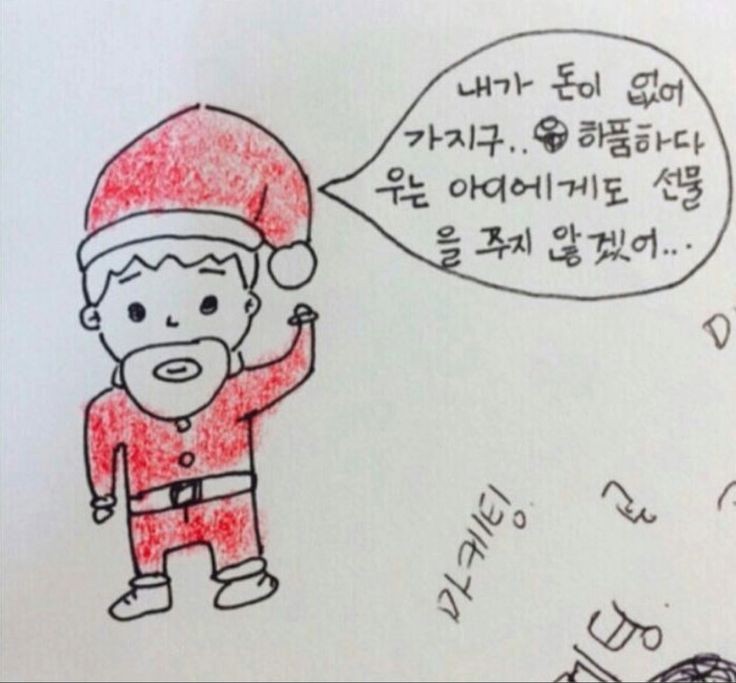 내가 돈이 없어
가지구.. 하품하다
우는 아이에게도 선물
을 쭈지 않겠어...
마케팅